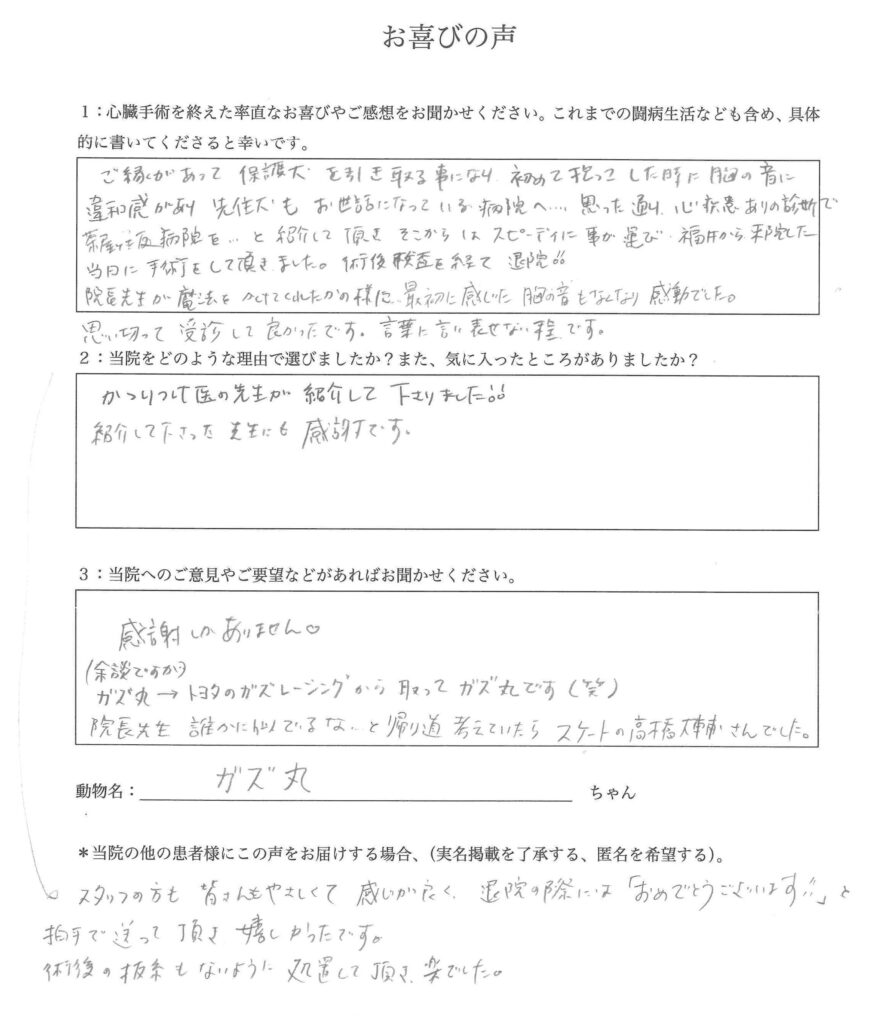 お喜びの声
1：心臓手術を終えた率直なお喜びやご感想をお聞かせください。これまでの闘病生活なども含め、具体
的に書いてくださると幸いです。
ご縁があって 保護犬 を引き取る事になり 初めて抱っこした時に胸の音に
違和感があり 先住犬も お世話になっている病院へ… 思った通り、心疾患ありの診断で
病院を… と紹介して頂き そこからは スピーディに事が運び、福井から来院した
当日に手術をして頂きました。術後検査を経て 退院!!
院長先生が魔法をかけてくれたかの様に 最初に感じた 胸の音もなくなり 感動でした。
思い切って 受診して良かったです。言葉に言い表せない程です。
2：当院をどのような理由で選びましたか？また、気に入ったところがありましたか？
かかりつけ医の先生が 紹介して下さりました!!
紹介して下さった 先生にも 感謝です。
3：当院へのご意見やご要望などがあればお聞かせください。
感謝しかありません♡
(余談ですが)
ガズ丸→トヨタのガズレーシングから取って ガズ丸です(笑)
院長先生 誰かに似てるな…と帰り道 考えていたら スケートの高橋大輔さんでした。
動物名： ガズ丸 ちゃん
＊当院の他の患者様にこの声をお届けする場合、(実名掲載を了承する、匿名を希望する)。
○ スタッフの方も 皆さんもやさしくて 感じが良く、退院の際には「おめでとうございます!!」と
拍手で送って頂き 嬉しかったです。
術後の抜糸もないように 処置して頂き、楽でした。